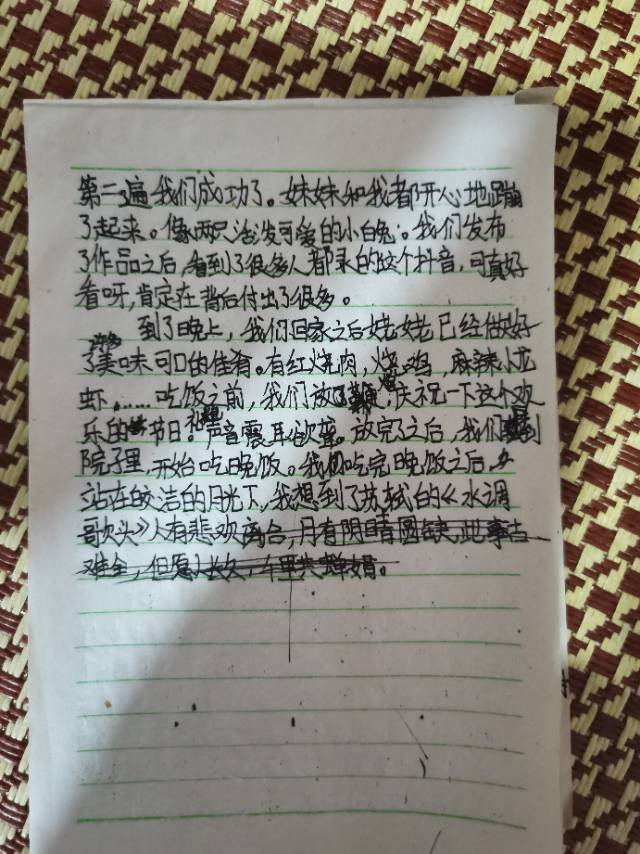 第二遍我们成功了。妹妹和我都开心地蹦
了起来。像两只活泼可爱的小白兔。我们发布
了作品之后,看到了很多人都录的这个抖音,可真好
看呀,肯定在背后付出了很多。
到了晚上,我们回家之后姥姥已经做好
许多
了美味可口的佳肴。有红烧肉,烧鸡,麻辣小龙
虾……吃饭之前,我们放了 庆祝一下这个欢
乐的 节日。声音震耳欲聋。放完了之后,我们 到
院子里,开始吃晚饭。我们吃完晚饭之后,
站在皎洁的月光下,我想到了苏轼的《水调
歌头》人有悲欢离合,月有阴晴圆缺,此事古
难全,但愿人长久,千里共婵娟。